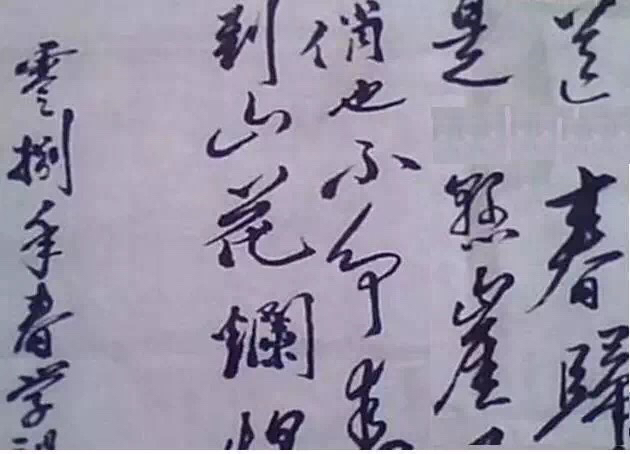 送春歸
是懸崖
俏也不争春
到山花爛
零捌年春学